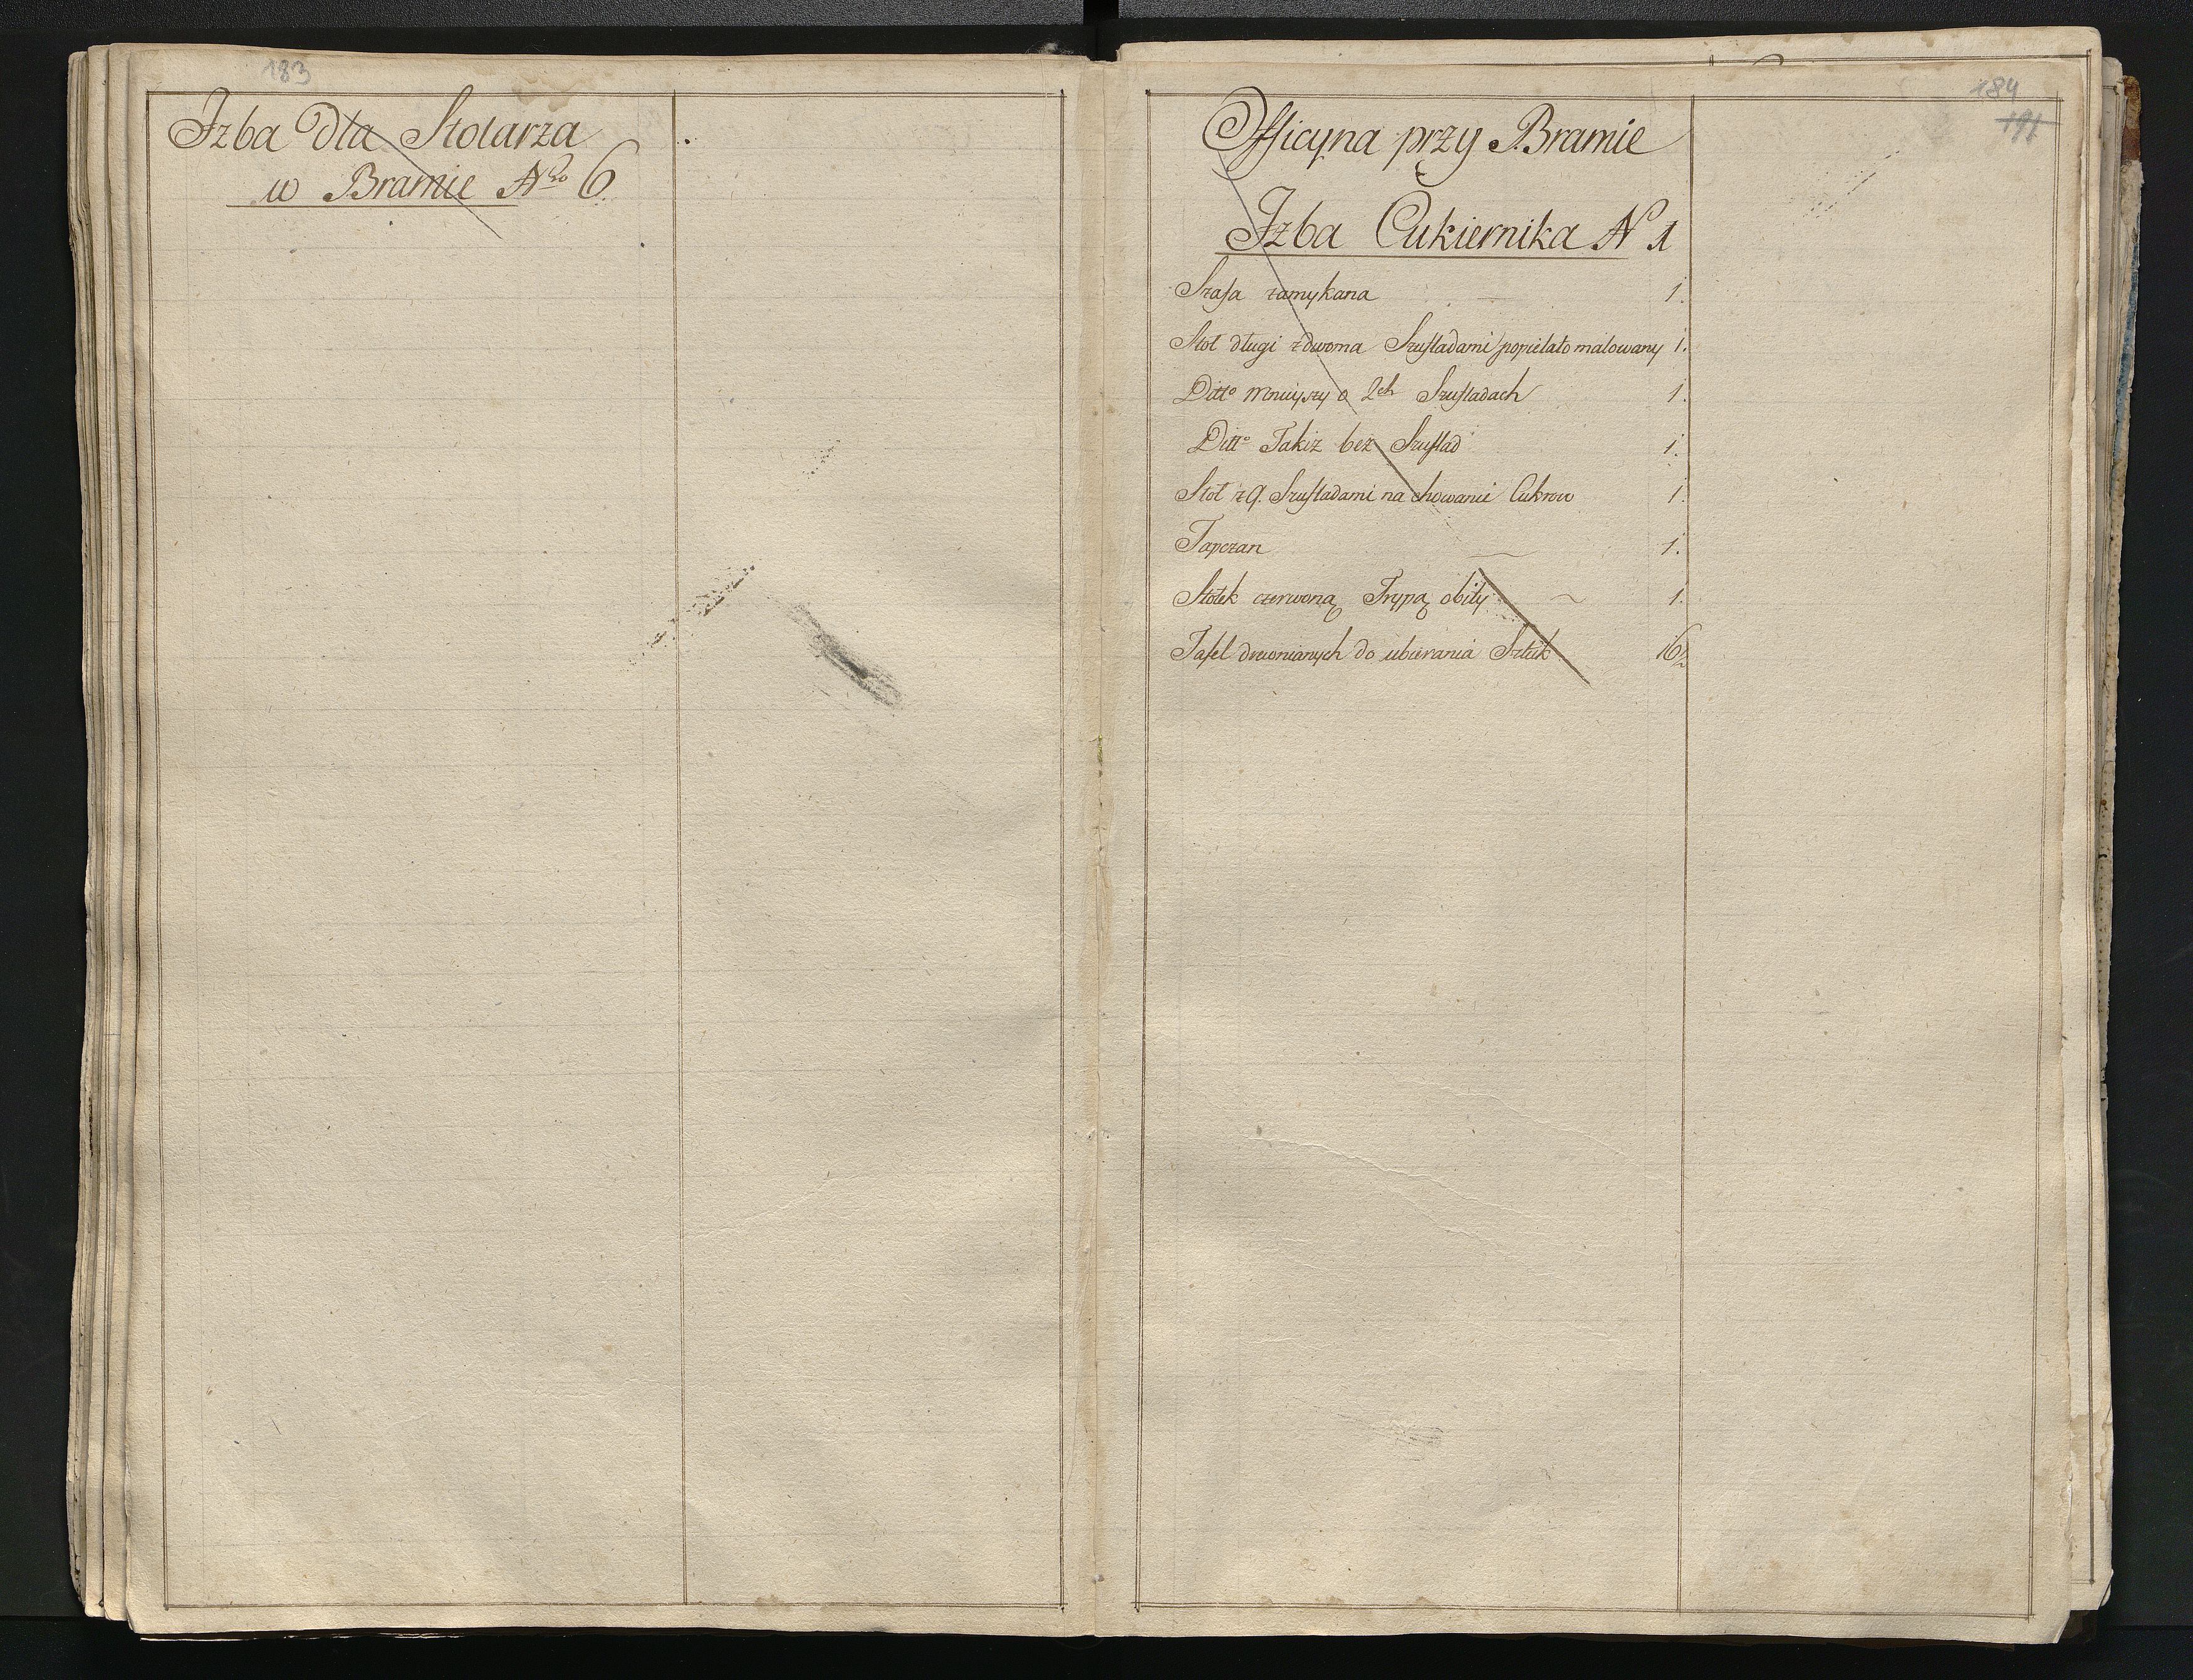 183
Izba dla Stolarza
w Bramie Nro 6.
184
191
Officyna przy Bramie
Izba Cukiernika N 1
Szafa zamykana 1.
Stoł długi z dwoma Szufladami popielato malowany 1.
Ditto mnieyszy o 2ch Szufladach 1.
Ditto Takiż bez Szuflad 1.
Stoł z 9. Szufladami na chowanie Cukrow 1.
Tapczan 1.
Stołek czerwoną Trypą obity 1.
Tafel drewnianych do ubierania Sztuk 16